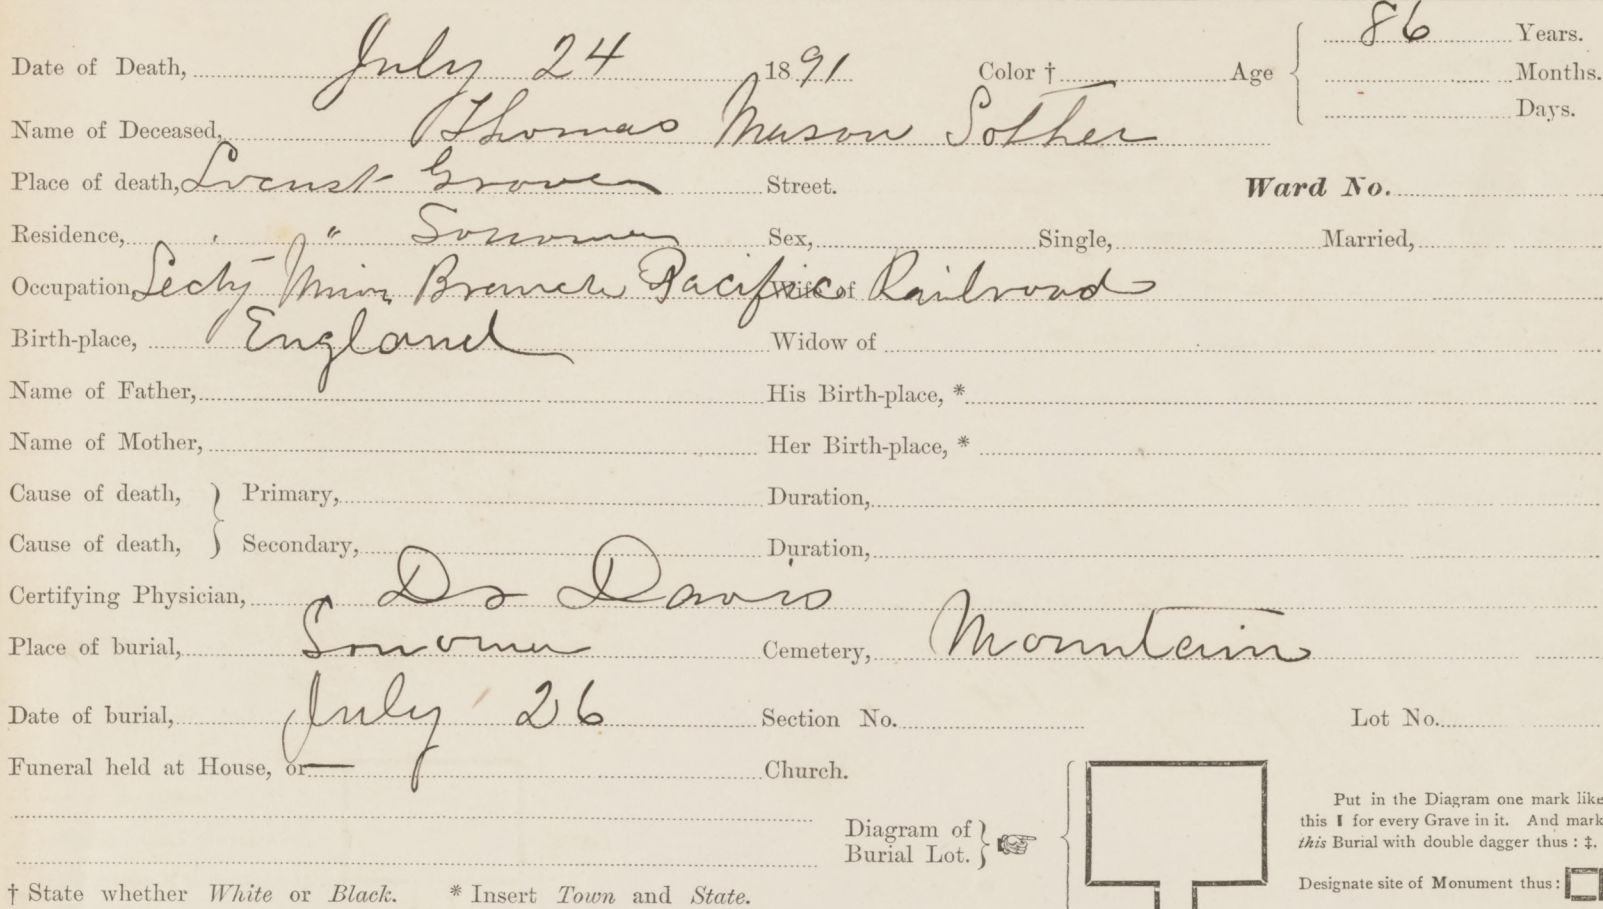 86 Years.
Date of Death, July 24 1891 Color † Age Months.
Days.
Name of Deceased, Thomas Mason Sother
Place of death, Locust Grove Street. Ward No.
Residence, " Sonoma Sex, Single, Married,
Occupation, Union Branch Pacific Railroad Wife of
Birth-place, England Widow of
Name of Father, His Birth-place, *
Name of Mother, Her Birth-place, *
Cause of death, } Primary, Duration,
Cause of death, } Secondary, Duration,
Certifying Physician, Dr Davis
Place of burial, Sonoma Cemetery, Mountain
Date of burial, July 26 Section No. Lot No.
Funeral held at House, or — Church.
Diagram of
Burial Lot. }
Put in the Diagram one mark like
this I for every Grave in it. And mark
this Burial with double dagger thus : ‡.
Designate site of Monument thus :
† State whether White or Black. * Insert Town and State.